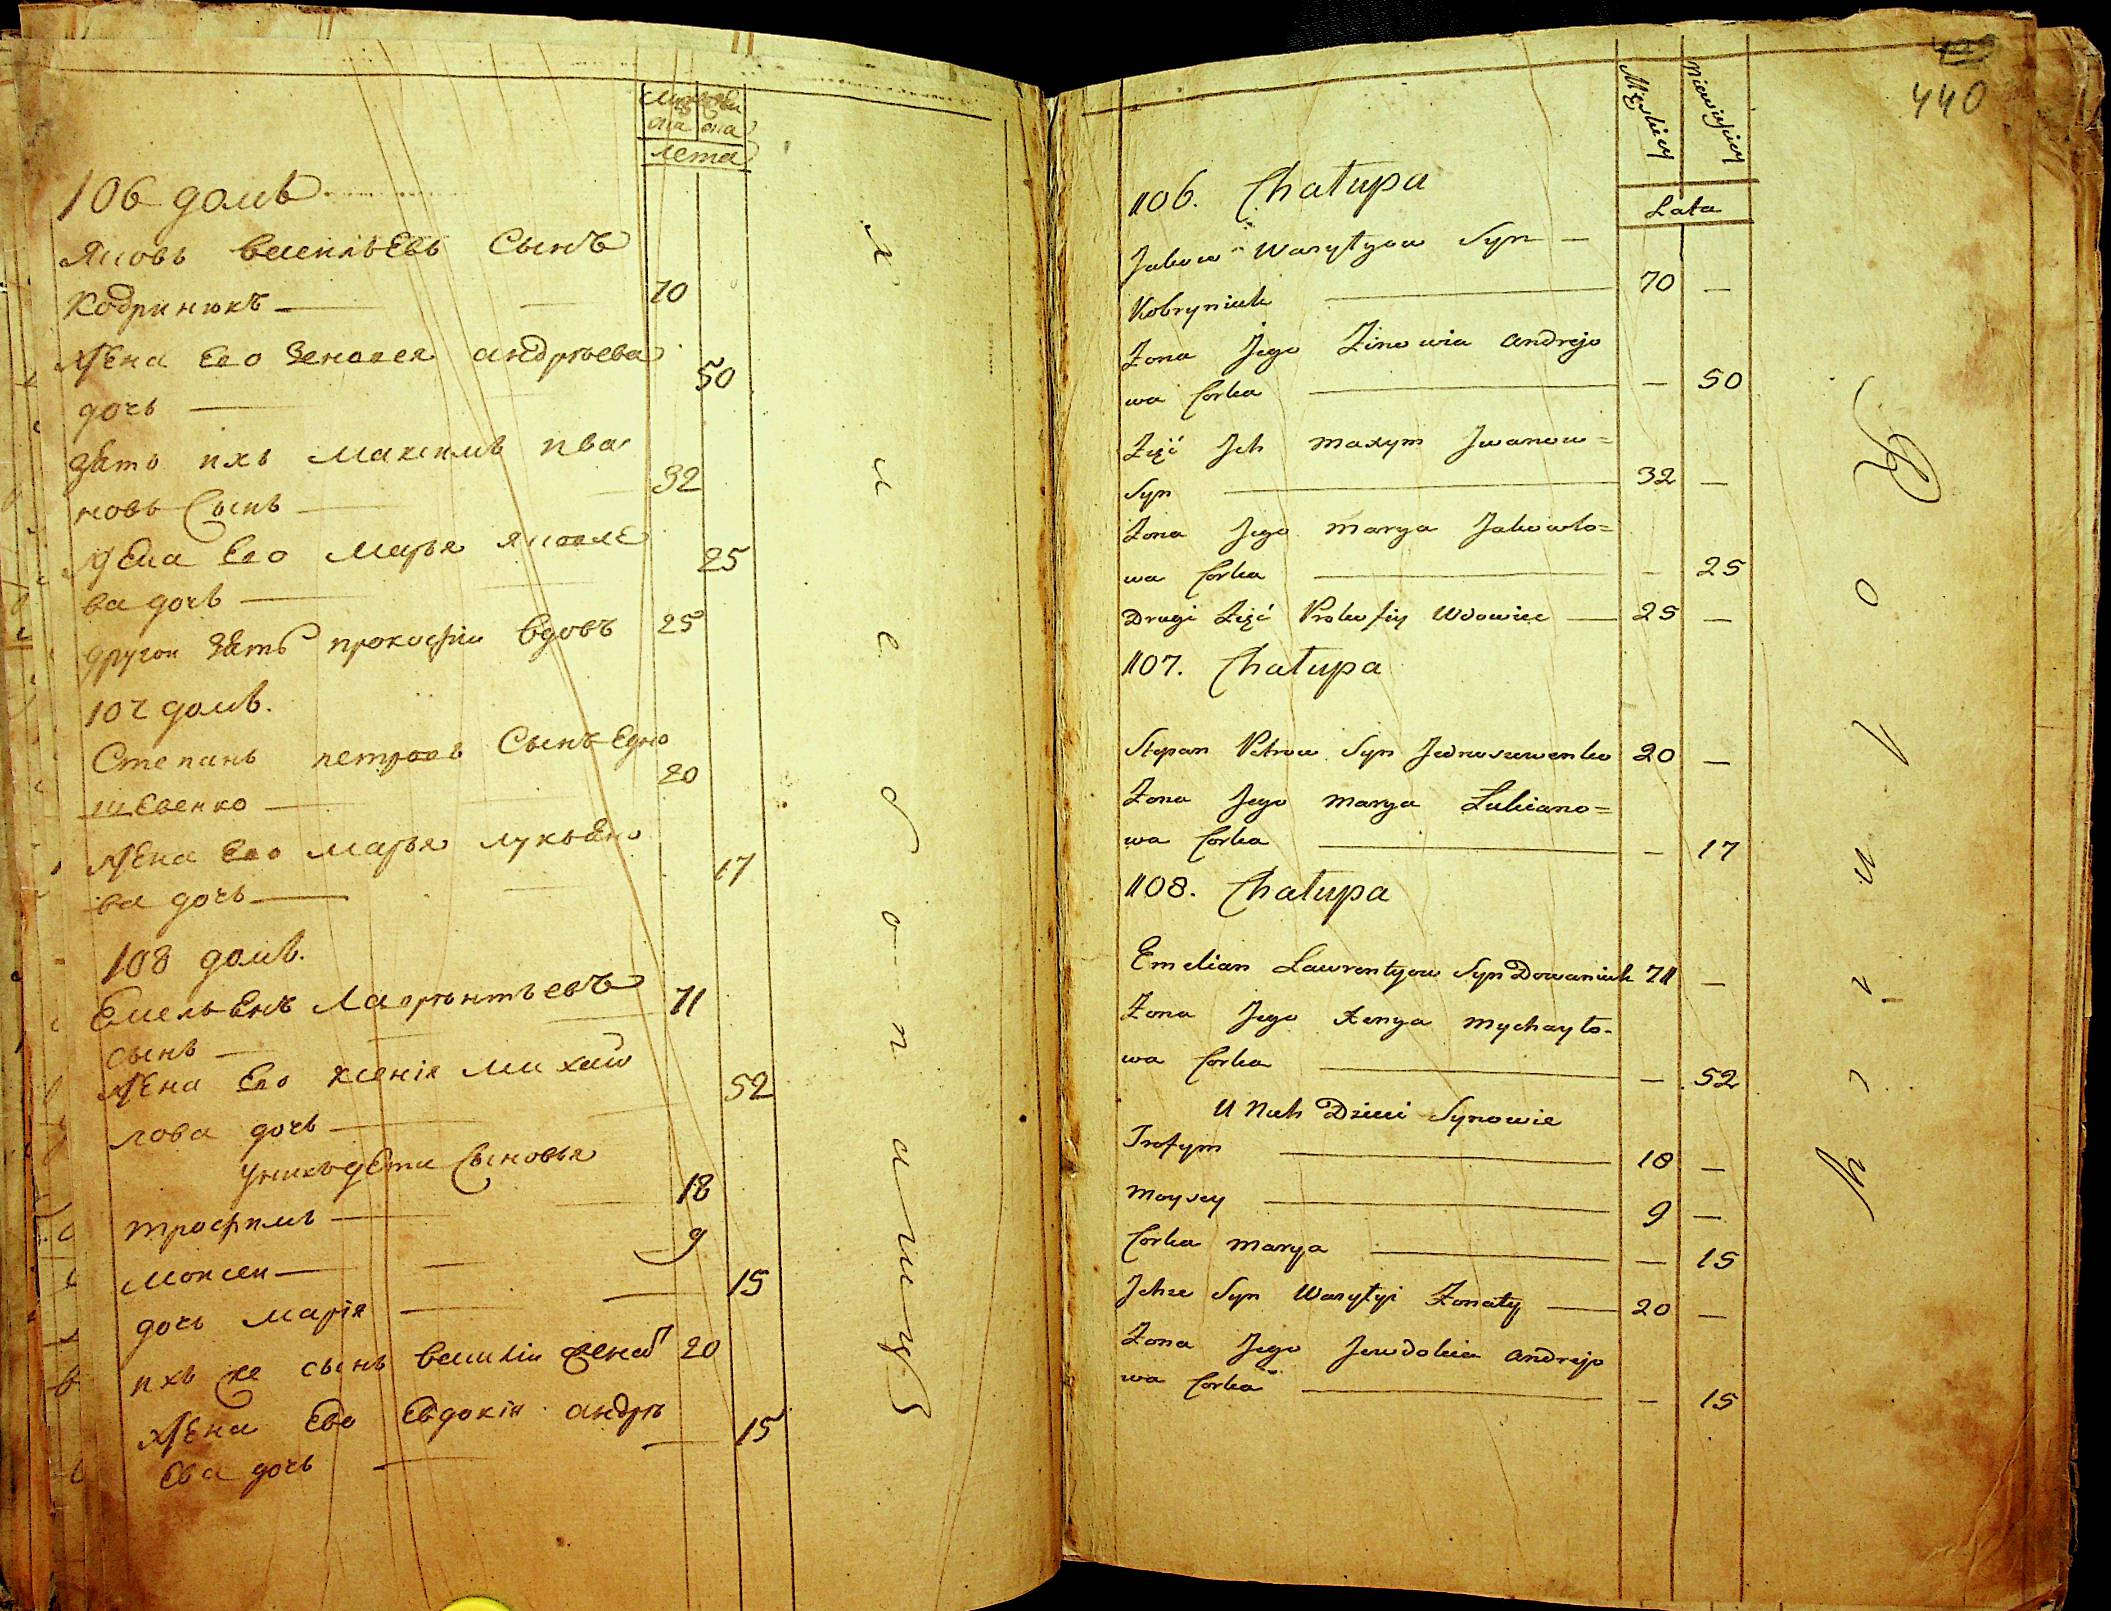 лета
106 домъ
Яковъ васильевъ Сынъ
Кобринюкъ 70
Жена Его Зеновея андрѣева
дочь 50
Зять ихъ максимъ ива
новъ Сынъ 32
Жена Его марья яковле
ва дочь 25
другои Зять прокофіи вдовъ 25
107 домъ.
Степанъ петровъ Сынъ Едно
шевенко 20
Жена Его марья лукьяно
ва дочь 17
108 домъ.
Емельянъ Лаврѣнтьевъ 71
сынъ
Жена Его ксенія михаи
лова дочь 52
Унихъ дети Сыновья
трофимъ 18
моисеи 9
дочь марія 15
ихъ же сынъ василіи женатъ 20
Жена Ево Евдокія андрѣ
Ева дочь 15
440
Męskiey Niewieściey
Lata
106. Chałupa
Jakow Wasylyow Syn —
Kobryniuk 70 —
Żona Jego Zinowia Andrejo
wa Corka — 50
Zięć Ich Maxym Jwanow=
Syn 32 —
Żona Jego Marya Jakowlo=
wa Corka — 25
Drugi Zięć Prokofiy Wdowiec — 25 —
107. Chałupa
Stepan Petrow Syn Jednoszewenko 20 —
Żona Jego Marya Łukiano=
wa Corka — 17
108. Chałupa
Emelian Lawrentyow Syn Dowaniuk 71 —
Żona Jego Xenya Mychayło-
wa Corka — 52
U Nich Dzieci Synowie
Trofym 18 —
Moysey 9 —
Corka Marya — 15
Ichże Syn Wasylyi Żonaty — 20 —
Żona Jego Jewdokia Andrejo
wa Corka — 15